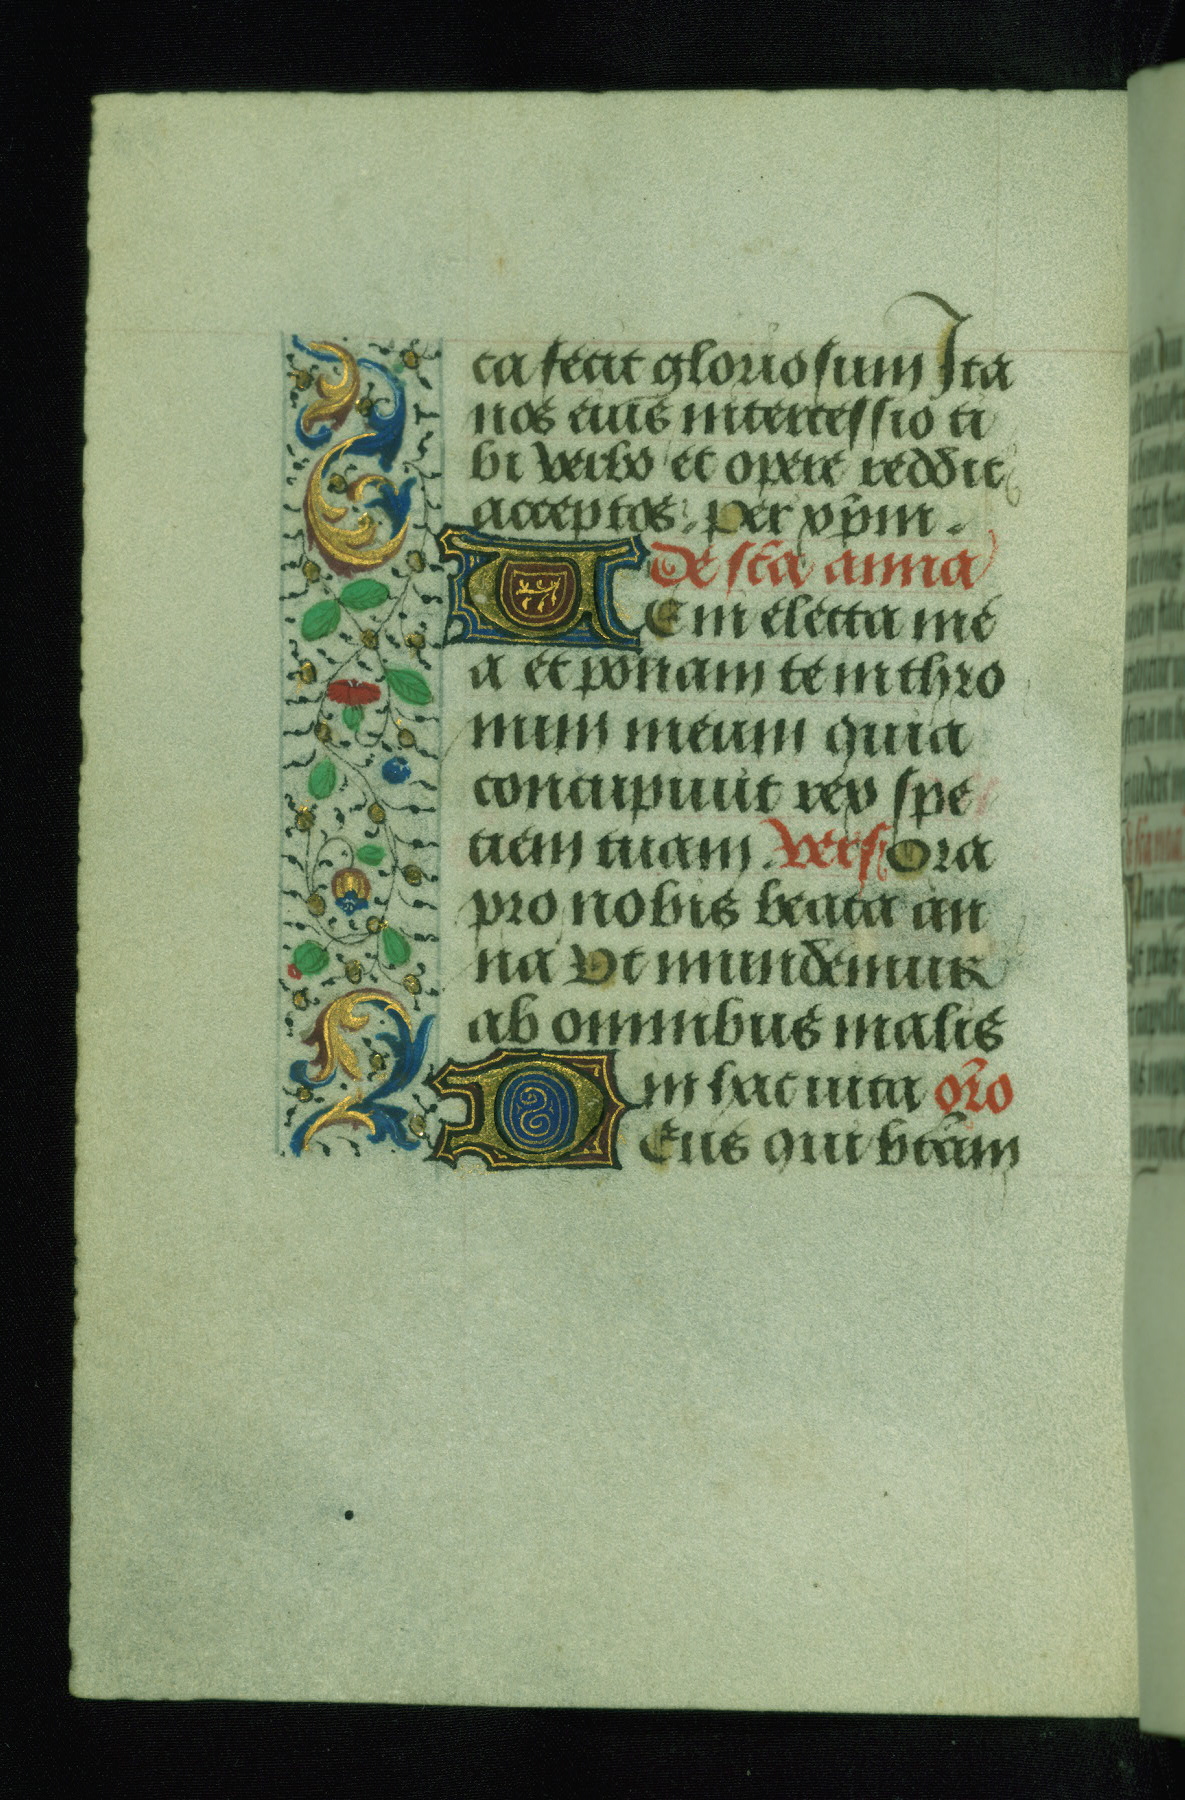 ta fecit gloriosum Ita
nos eius intercessio ti
bi verbo et opere reddit
acceptos. Per xp̄m.
De sc̄a anna
Veni electa me
a et ponam te in thro
num meum quia
concupiuit rex spe
ciem tuam. Vers Ora
pro nobis beata an
na Ut mundemur
ab omnibus malis
in hac uita or̄o
Deus qui bt̄am